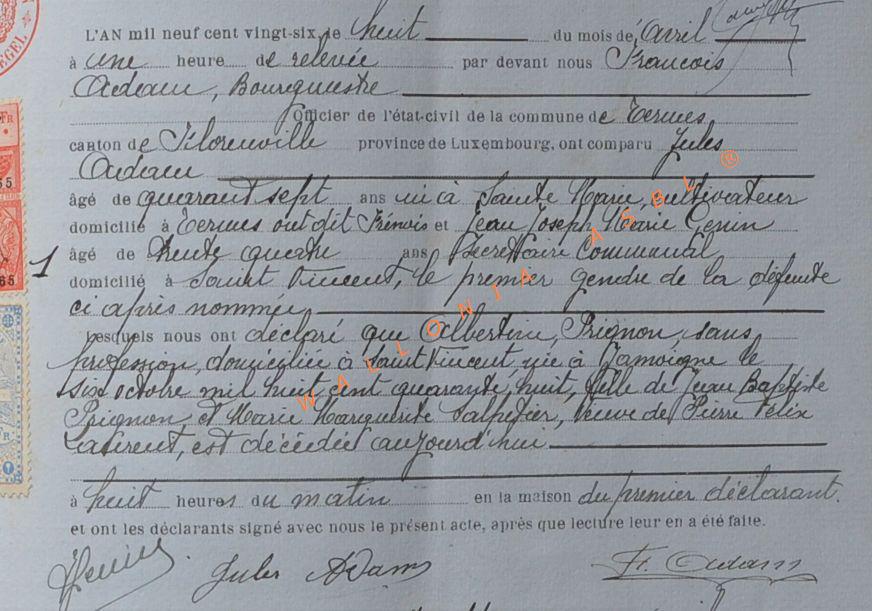 L'AN mil neuf cent vingt-six, le huit du mois de Avril
à une heure de relevée par devant nous Francois
Adam, Bourgmestre
Officier de l'état-civil de la commune de Termes
canton de Florenville province de Luxembourg, ont comparu Jules
Adam
âgé de quarant sept ans né à Sainte Marie, cultivateur
domicilié à Termes et Jean Joseph Marie Genin
âgé de trente quatre ans Secrétaire Communal
1
domicilié à Saint Vincent, le premier gendre de la défunte
ci après nommée
Lesquels nous ont déclaré que Albertine Prignon, sans
profession, domiciliée à Saint Vincent, née à Jamoigne le
six octobre mil huit cent quarante huit, fille de Jean Baptiste
Prignon et Marie Marguerite Salpetier, veuve de Pierre Félix
Laurent, est décédée aujourd'hui
à huit heures du matin en la maison du premier déclarant.
et ont les déclarants signé avec nous le présent acte, après que lecture leur en a été faite.
Jules Adam Fr. Adam
WALLONIA ASBL ®